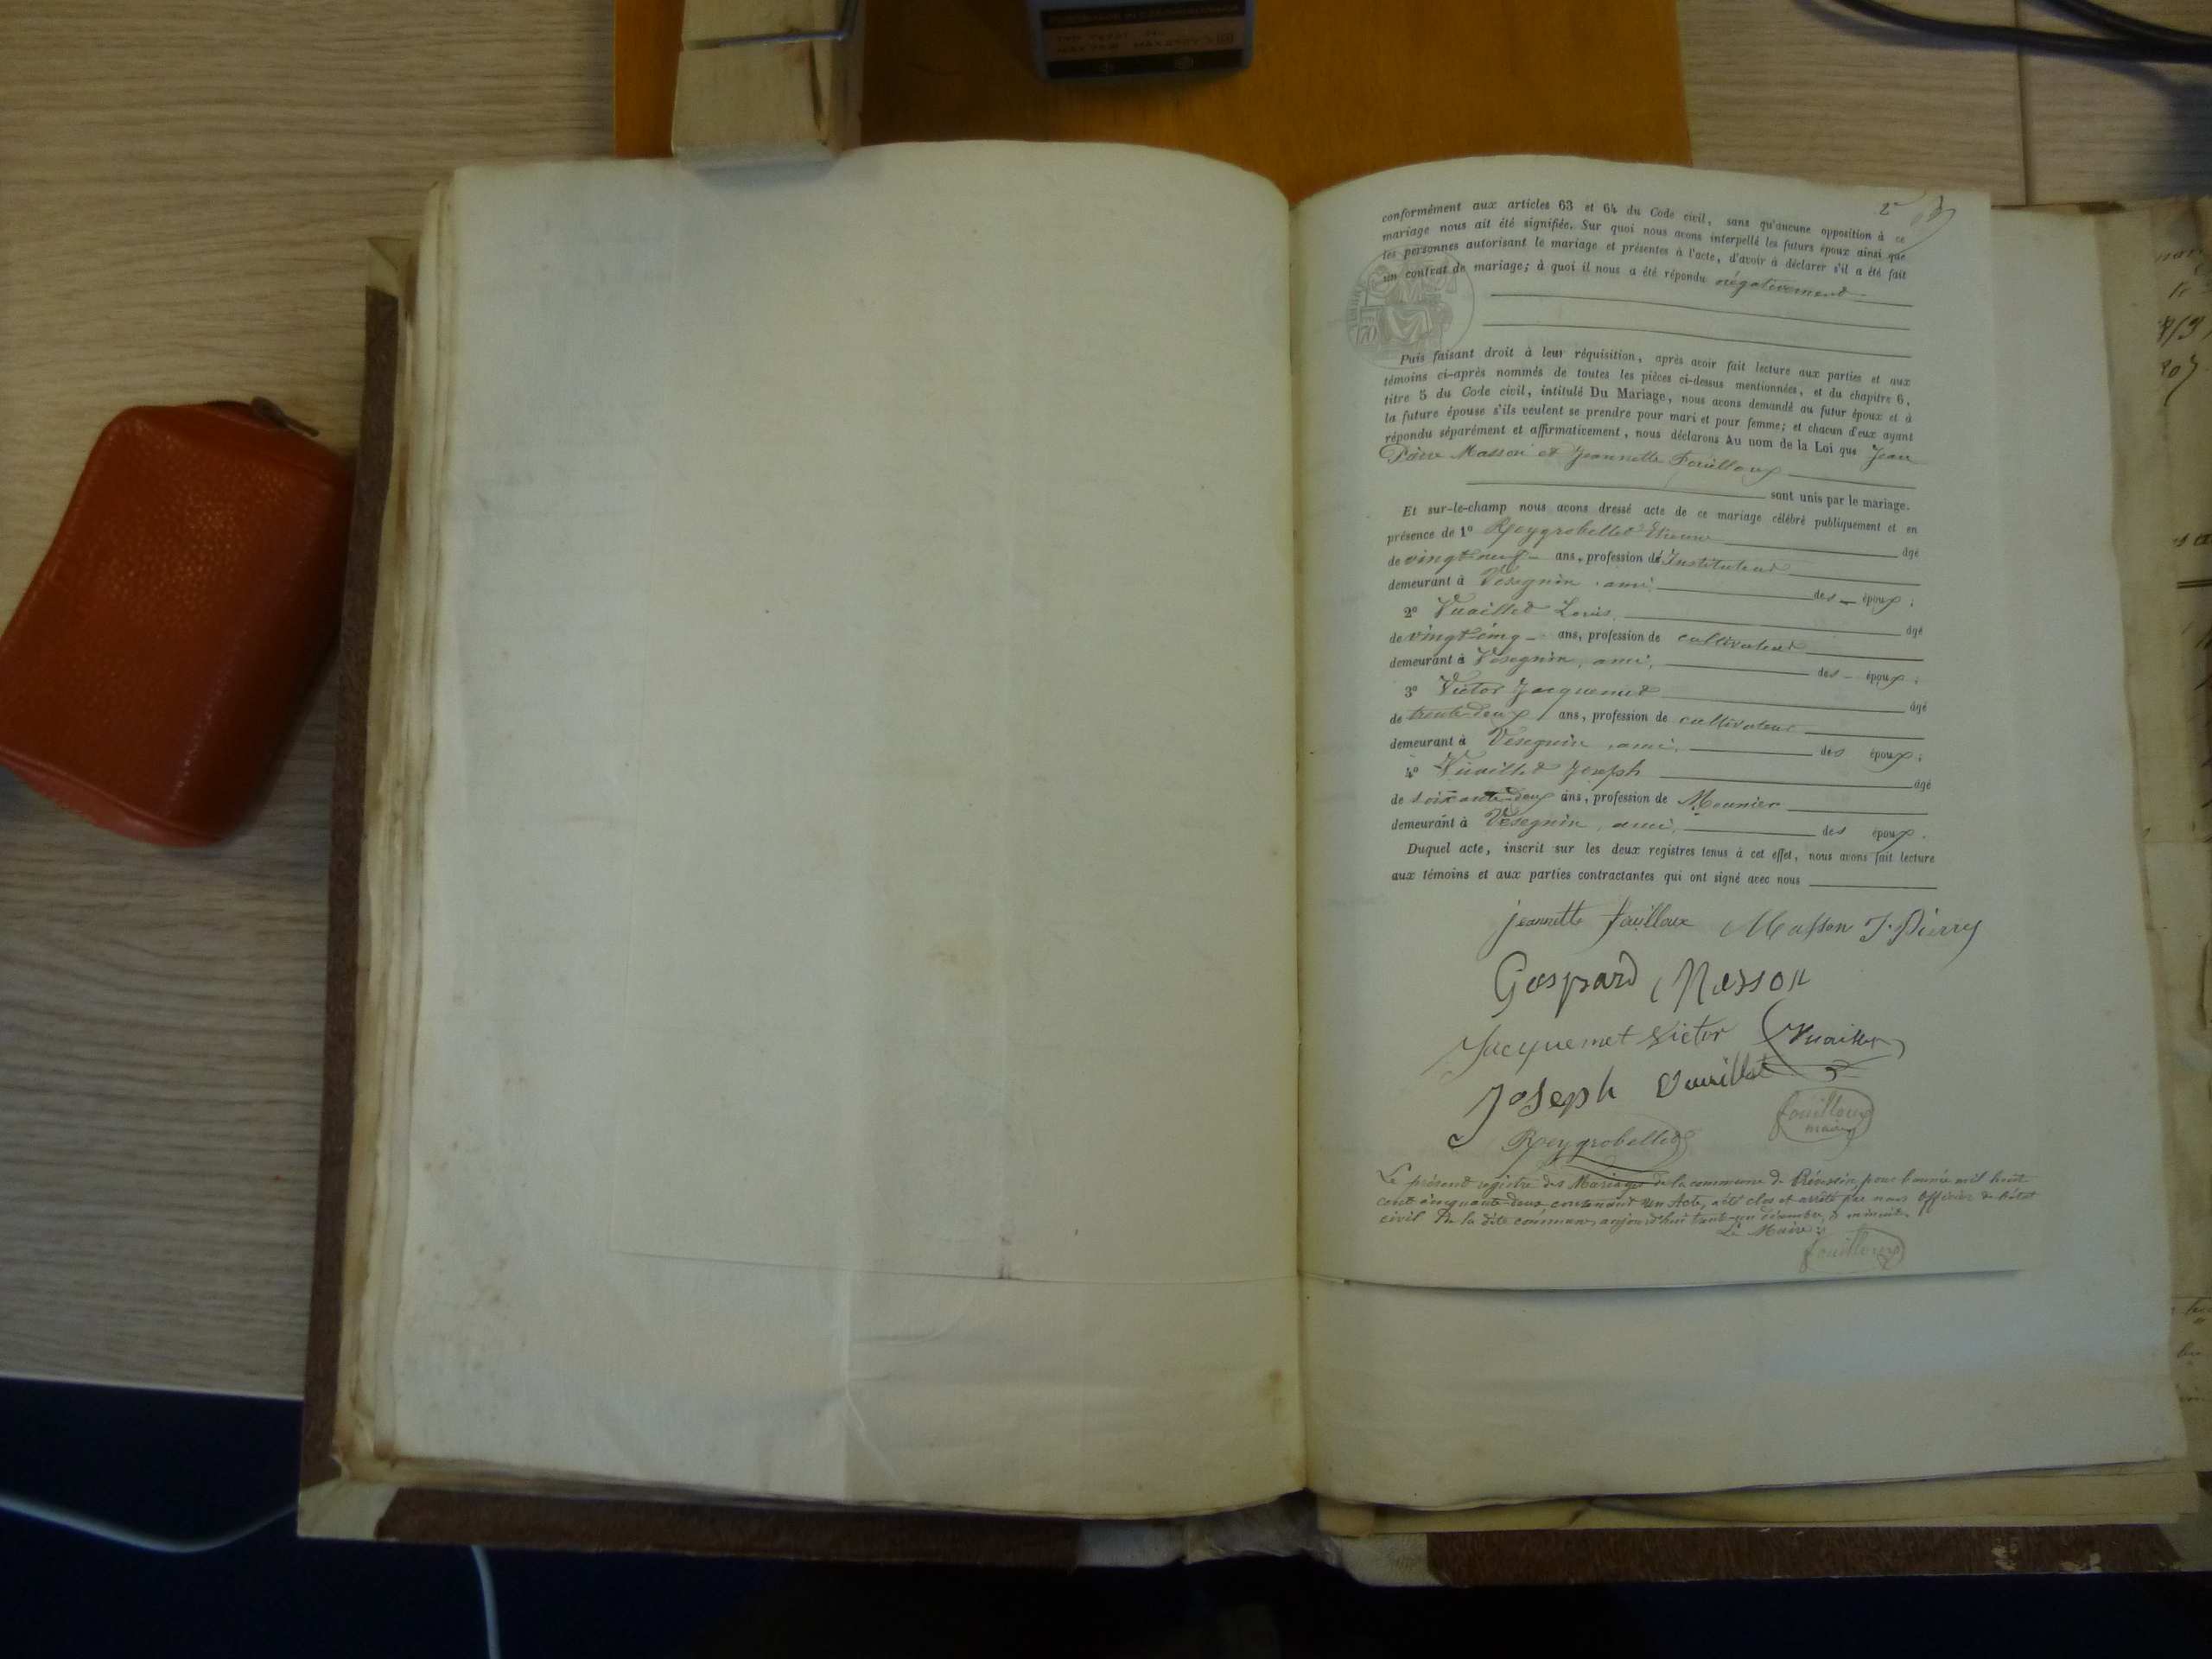 2e
conformément aux articles 63 et 64 du Code civil, sans qu'aucune opposition à ce
mariage nous ait été signifiée. Sur quoi nous avons interpellé les futurs époux ainsi que
les personnes autorisant le mariage et présentes à l'acte, d'avoir à déclarer s'il a été fait
un contrat de mariage; à quoi il nous a été répondu négativement
Puis faisant droit à leur réquisition, après avoir fait lecture aux parties et aux
témoins ci-après nommés de toutes les pièces ci-dessus mentionnées, et du chapitre 6,
titre 5 du Code civil, intitulé Du Mariage, nous avons demandé au futur époux et à
la future épouse s'ils veulent se prendre pour mari et pour femme; et chacun d'eux ayant
répondu séparément et affirmativement, nous déclarons Au nom de la Loi que Jean
Pierre Masson et Jeannette Fouilloux
sont unis par le mariage.
Et sur-le-champ nous avons dressé acte de ce mariage célébré publiquement et en
présence de 1° Reygrobellet Etienne âgé
de vingt neuf ans, profession d'Instituteur
demeurant à Vésegnin, ami, des époux;
2° Vuaillet Louis, âgé
de vingt cinq ans, profession de cultivateur
demeurant à Vésegnin, ami, des époux;
3° Victor Jacquemet âgé
de trente-deux ans, profession de cultivateur
demeurant à Vésegnin, ami, des époux;
4° Vuaillet Joseph âgé
de soixante-deux ans, profession de Meunier
demeurant à Vésegnin, ami, des époux.
Duquel acte, inscrit sur les deux registres tenus à cet effet, nous avons fait lecture
aux témoins et aux parties contractantes qui ont signé avec nous
jeannette fouilloux Masson J. Pierry
Gaspard Masson
Jacquemet Victor Vuaillet
Joseph Vuaillet
fouilloux
maire
Reygrobellet
Le présent registre des Mariages de la commune de Prévessin pour l'année mil huit
cent cinquante-deux contenant un Acte, a été clos et arrêté par nous Officier de l'état
civil de la dite commune, aujourd'hui trente-un décembre, à minuit.
Le Maire:
fouilloux